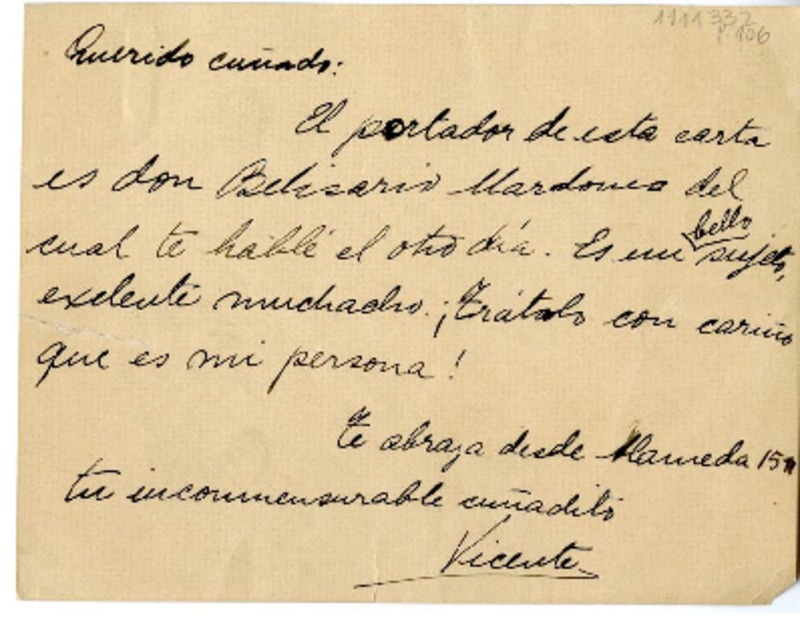 1111332
106
Querido cuñado:
El portador de esta carta
es don Belisario Mardones del
cual te hablé el otro día. Es un bello sujeto,
exelente muchacho. ¡Trátalo con cariño
que es mi persona!
Te abraza desde Alameda
tu inconmensurable cuñadito
Vicente